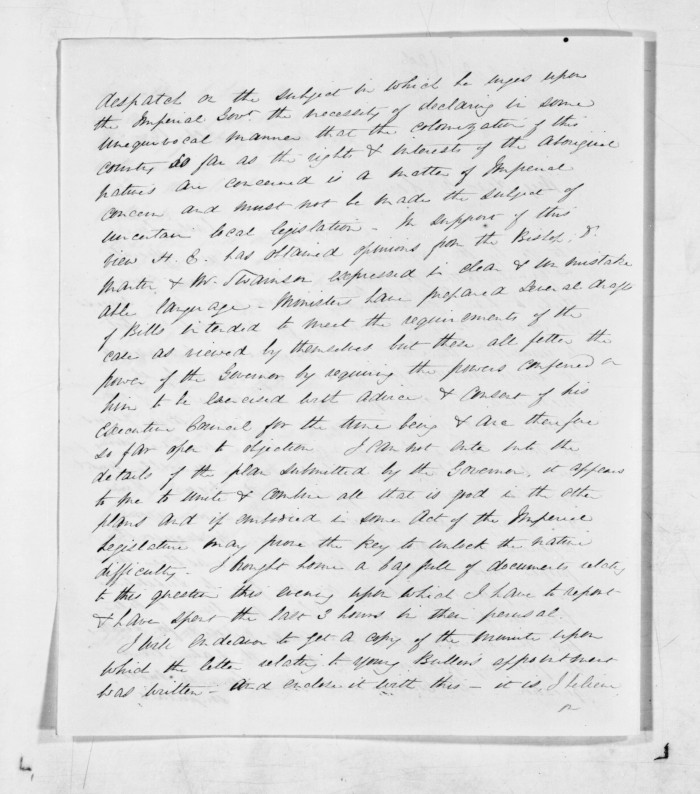 despatch on the subject in which he urges upon
the Imperial Govt the necessity of declaring in some
unequivocal manner that the colonization of this
country so far as the rights & interests of the Aboriginal
natives are concerned is a matter of Imperial
concern and must not be made the subject of
uncertain local legislation - In support of this
view H. E. has obtained opinions from the Bishop, Dr
Martin & Mr Swainson expressed in clear & unmistake
able language - Ministers have prepared several drafts
of Bills intended to meet the requirements of the
case as viewed by themselves but these all fetter the
power of the Governor by requiring the powers conferred on
him to be exercised with advice & consent of his
Executive Council for the time being & are therefore
so far open to objection I can not enter into the
details of the plan submitted by the Governor, it appears
to me to unite & combine all that is good in the other
plans and if embodied in some Act of the Imperial
Legislature may prove the key to unlock the native
difficulty - I brought home a bag full of documents relating
to this question this evening upon which I have to report
& have spent the last 3 hours in their perusal.
I will endeavor to get a copy of the minute upon
which the letter relating to young Buller's appointment
was written - and enclose it with this - it is, I believe